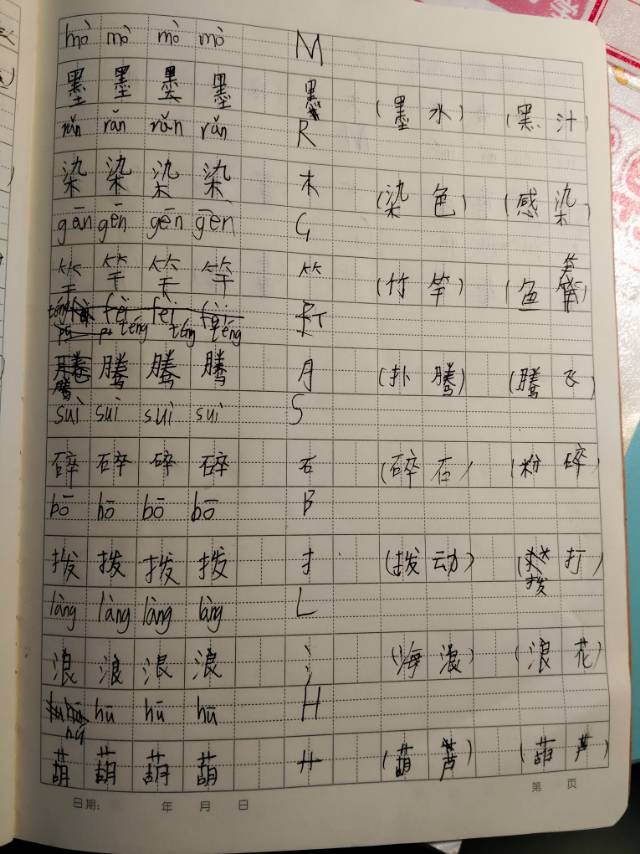 mò mò mò mò M
墨 墨 墨 墨 墨 (墨 水) (黑 汁)
rǎn rǎn rǎn R
染 染 染 染 木 (染 色) (感 染)
gān gēn gēn gēn G
竿 竿 竿 竿 ⺮ (竹 竿) (鱼 竿)
téng téng téng T
腾 腾 腾 腾 月 (扑 腾) (腾 飞)
suì suì suì suì S
碎 碎 碎 碎 石 (碎 石) (粉 碎)
bō bō bō bō B
拨 拨 拨 拨 扌 (拨 动) (拨 打)
làng làng làng làng L
浪 浪 浪 浪 氵 (海 浪) (浪 花)
hú hū hū hū H
葫 葫 葫 葫 艹 (葫 芦) (葫 芦)
日期: 年 月 日 第 页